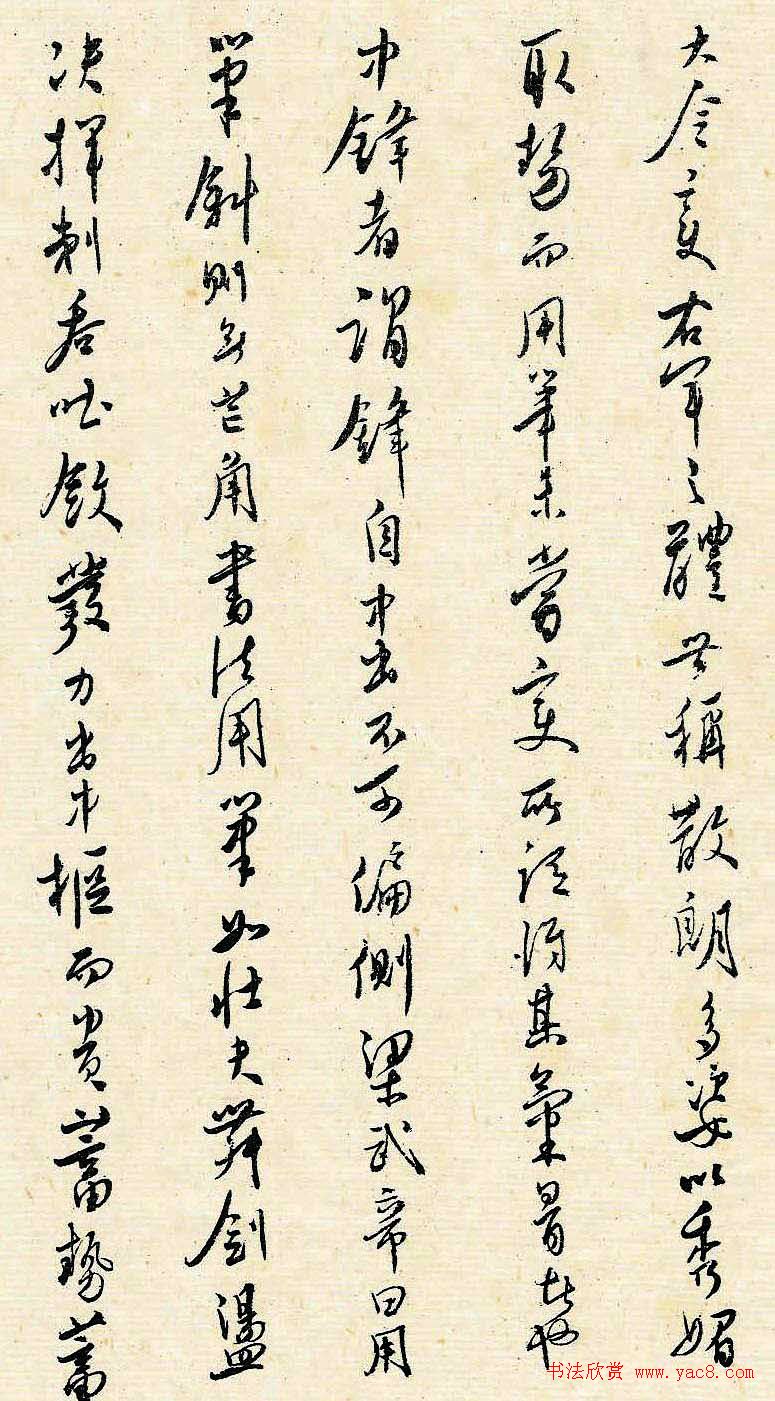 大令變右軍之體世稱散朗多姿以秀媚
取勢而用筆未嘗變所得其氣骨也
中鋒者謂鋒自中出不可偏側梁武帝曰用
筆斜則無芒角書法用筆如壯夫舞劍盪
決揮刺吞吐斂發力出中樞而貴蓄勢蓄
书法欣赏 www.yac8.com